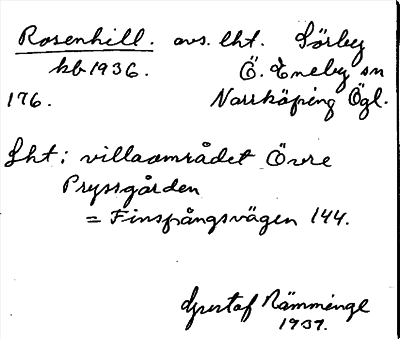 Rosenhill. avs. lht. Sörby
kb 1936. Ö. Eneby sn
176. Norrköping Ögl.
Lht; villaområdet Övre
Pryssgården
= Finspångsvägen 144.
Gustaf Rämminge
1937.